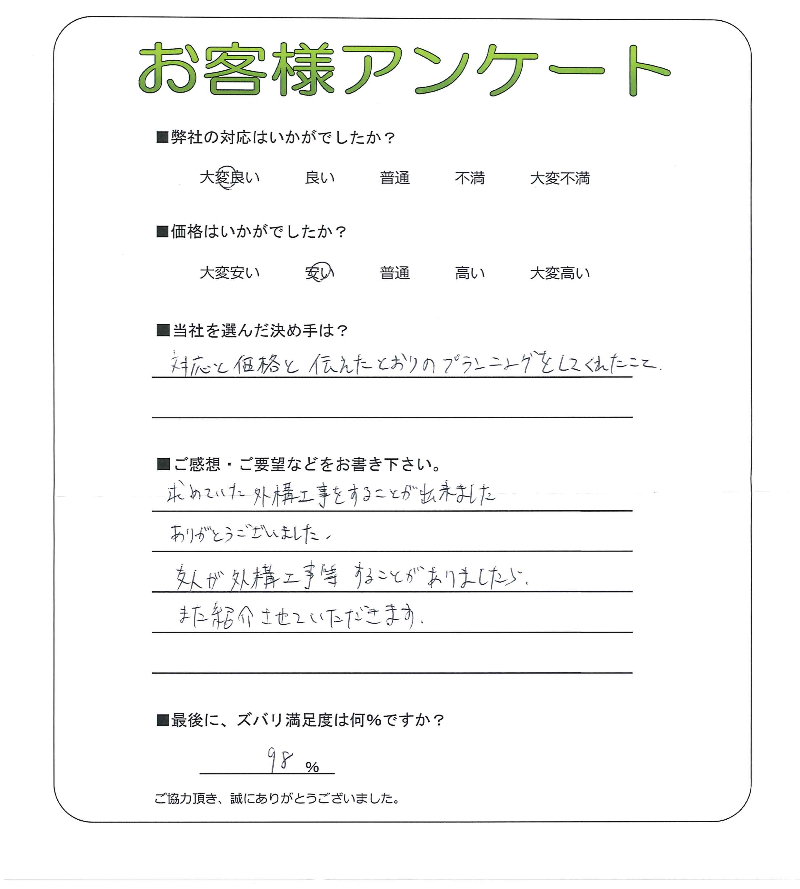 お客様アンケート
■弊社の対応はいかがでしたか？
大変良い 良い 普通 不満 大変不満
■価格はいかがでしたか？
大変安い 安い 普通 高い 大変高い
■当社を選んだ決め手は？
対応と価格と伝えたとおりのプランニングをしてくれたこと.
■ご感想・ご要望などをお書き下さい。
求めていた外構工事をすることが出来ました
ありがとうございました.
友人が外構工事等することがありましたら.
また紹介させていただきます.
■最後に、ズバリ満足度は何%ですか？
98 %
ご協力頂き、誠にありがとうございました。